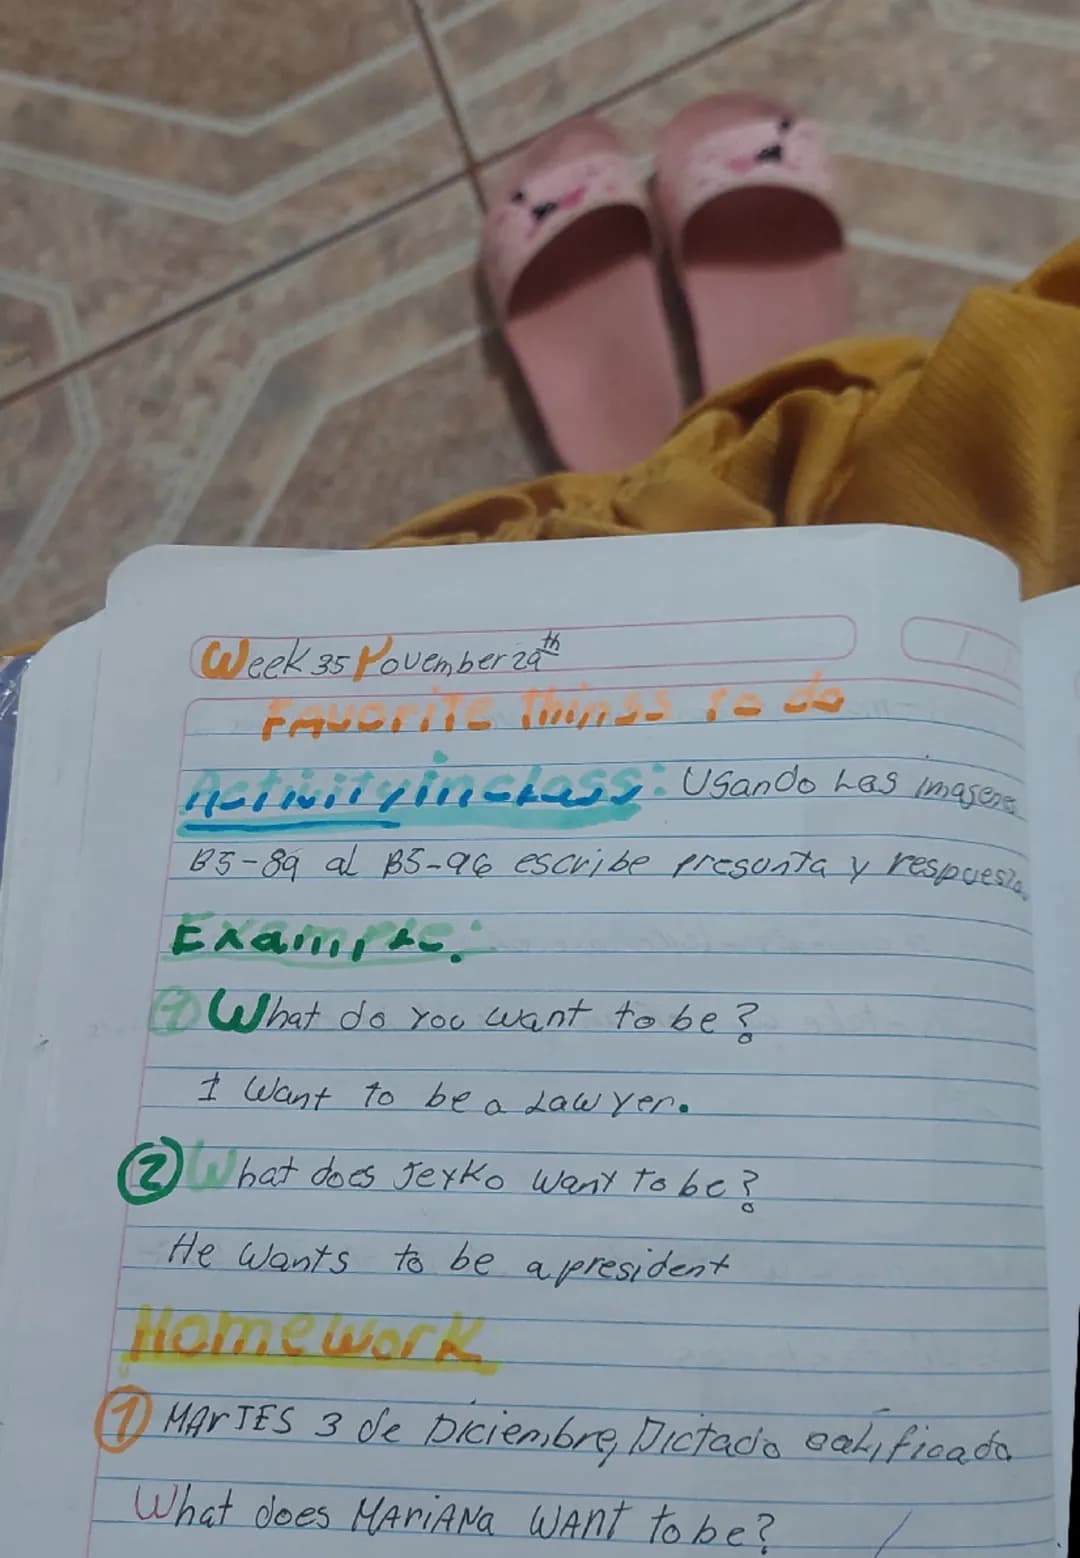 Week 35 November 29th
Favorite Things to do
Activity in class: Usando Las imagenes
B5-89 al B5-96 escribe pregunta y respuesta
Example:
1 What do you want to be?
I want to be a Lawyer.
2 What does Jeyko want to be?
He wants to be a president
Homework
1 MARTES 3 de Diciembre, Dictado calificado
What does MARIANA WANT to be?